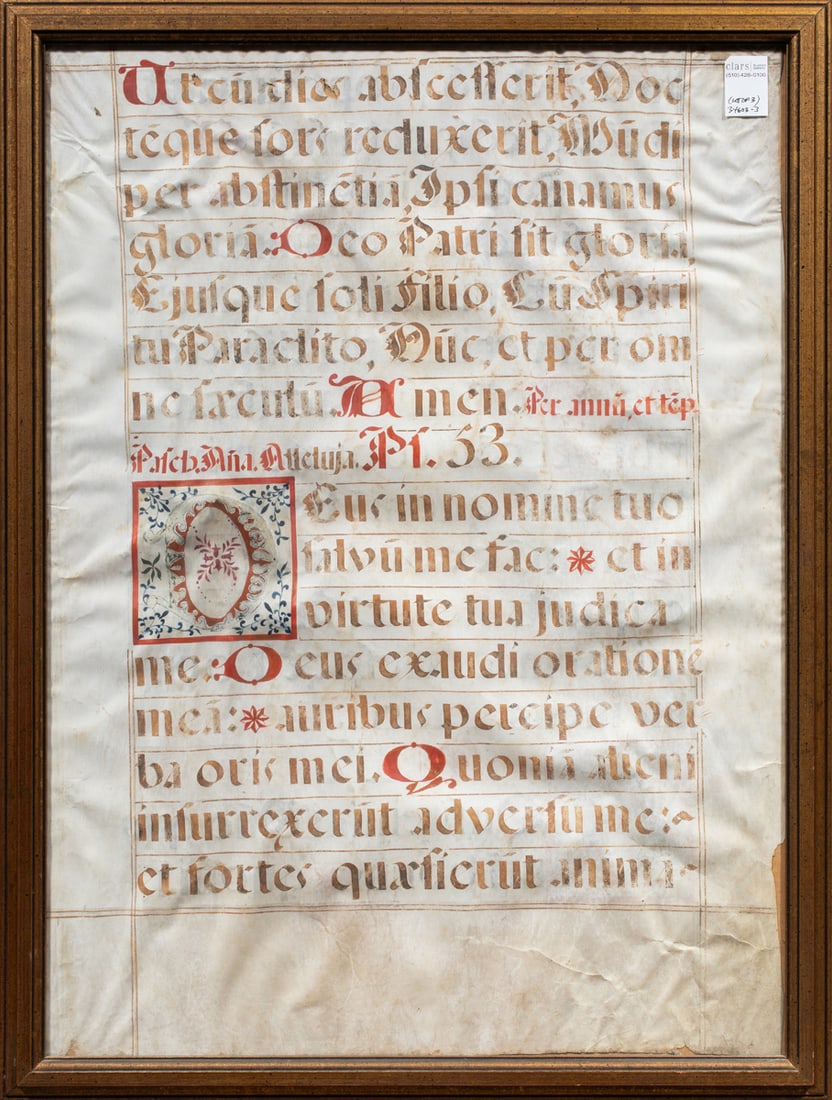 Ut cũ dies abscesserit, Noc
teque sors reduxerit, Mũdi
per abstinẽtiã, Ipsi canamus
gloriã. Deo Patri sit gloria,
Ejusque soli Filio, Cũ Spiri
tu Paraclito, Nũc, et per om
ne sæculũ. Amen. Per annũ, et tẽp.
Pasch. Añа. Alleluja. Ps. 53.
Deus in nomine tuo
salvũ me fac: * et in
virtute tua judica
me. Deus exaudi orationẽ
meã: * auribus percipe ver
ba oris mei. Quoniã alieni
insurrexerũt adversũ me:
et fortes quæsierũt anima-
clars
(510) 428-0100